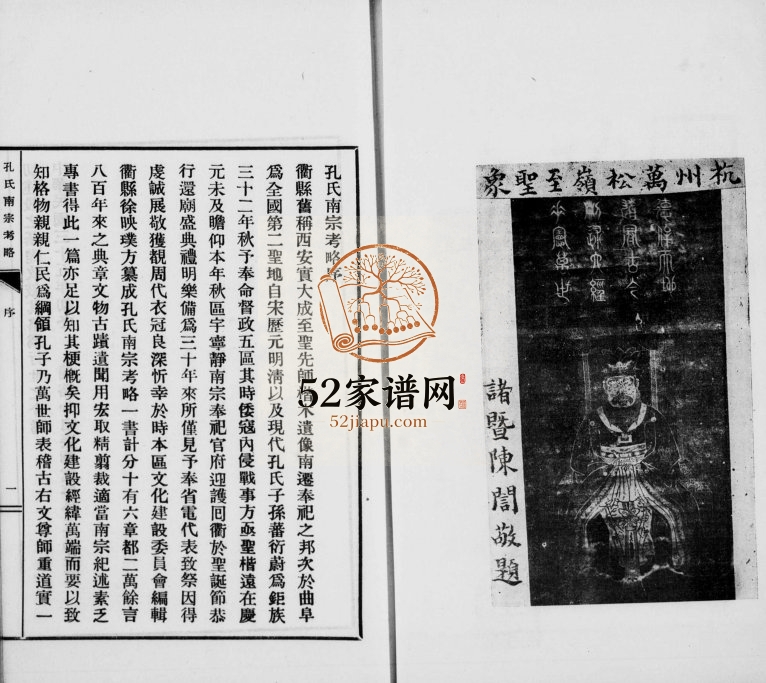 杭州萬松嶺至聖象
諸暨陳誾敬題
孔氏南宗考略序
衢縣舊稱西安實大成至聖先師楷木遺像南遷奉祀之邦次於曲阜
爲全國第二聖地自宋歷元明清以及現代孔氏子孫蕃衍蔚爲鉅族
三十二年秋予奉命督政五區其時倭寇內侵戰事方亟聖楷遠在慶
元未及瞻仰本年秋區宇寧靜南宗奉祀官府迎護囘衢於聖誕節恭
行還廟盛典禮明樂備爲三十年來所僅見予奉省電代表致祭因得
虔誠展敬獲覩周代衣冠良深忻幸於時本區文化建設委員會編輯
衢縣徐映璞方纂成孔氏南宗考略一書計分十有六章都二萬餘言
八百年來之典章文物古蹟遺聞用宏取精剪裁適當南宗紀述素乏
專書得此一篇亦足以知其梗概矣抑文化建設經緯萬端而要以致
知格物親親仁民爲綱領孔子乃萬世師表稽古右文尊師重道實一
孔氏南宗考略
序
一
52家谱网
52jiapu.com